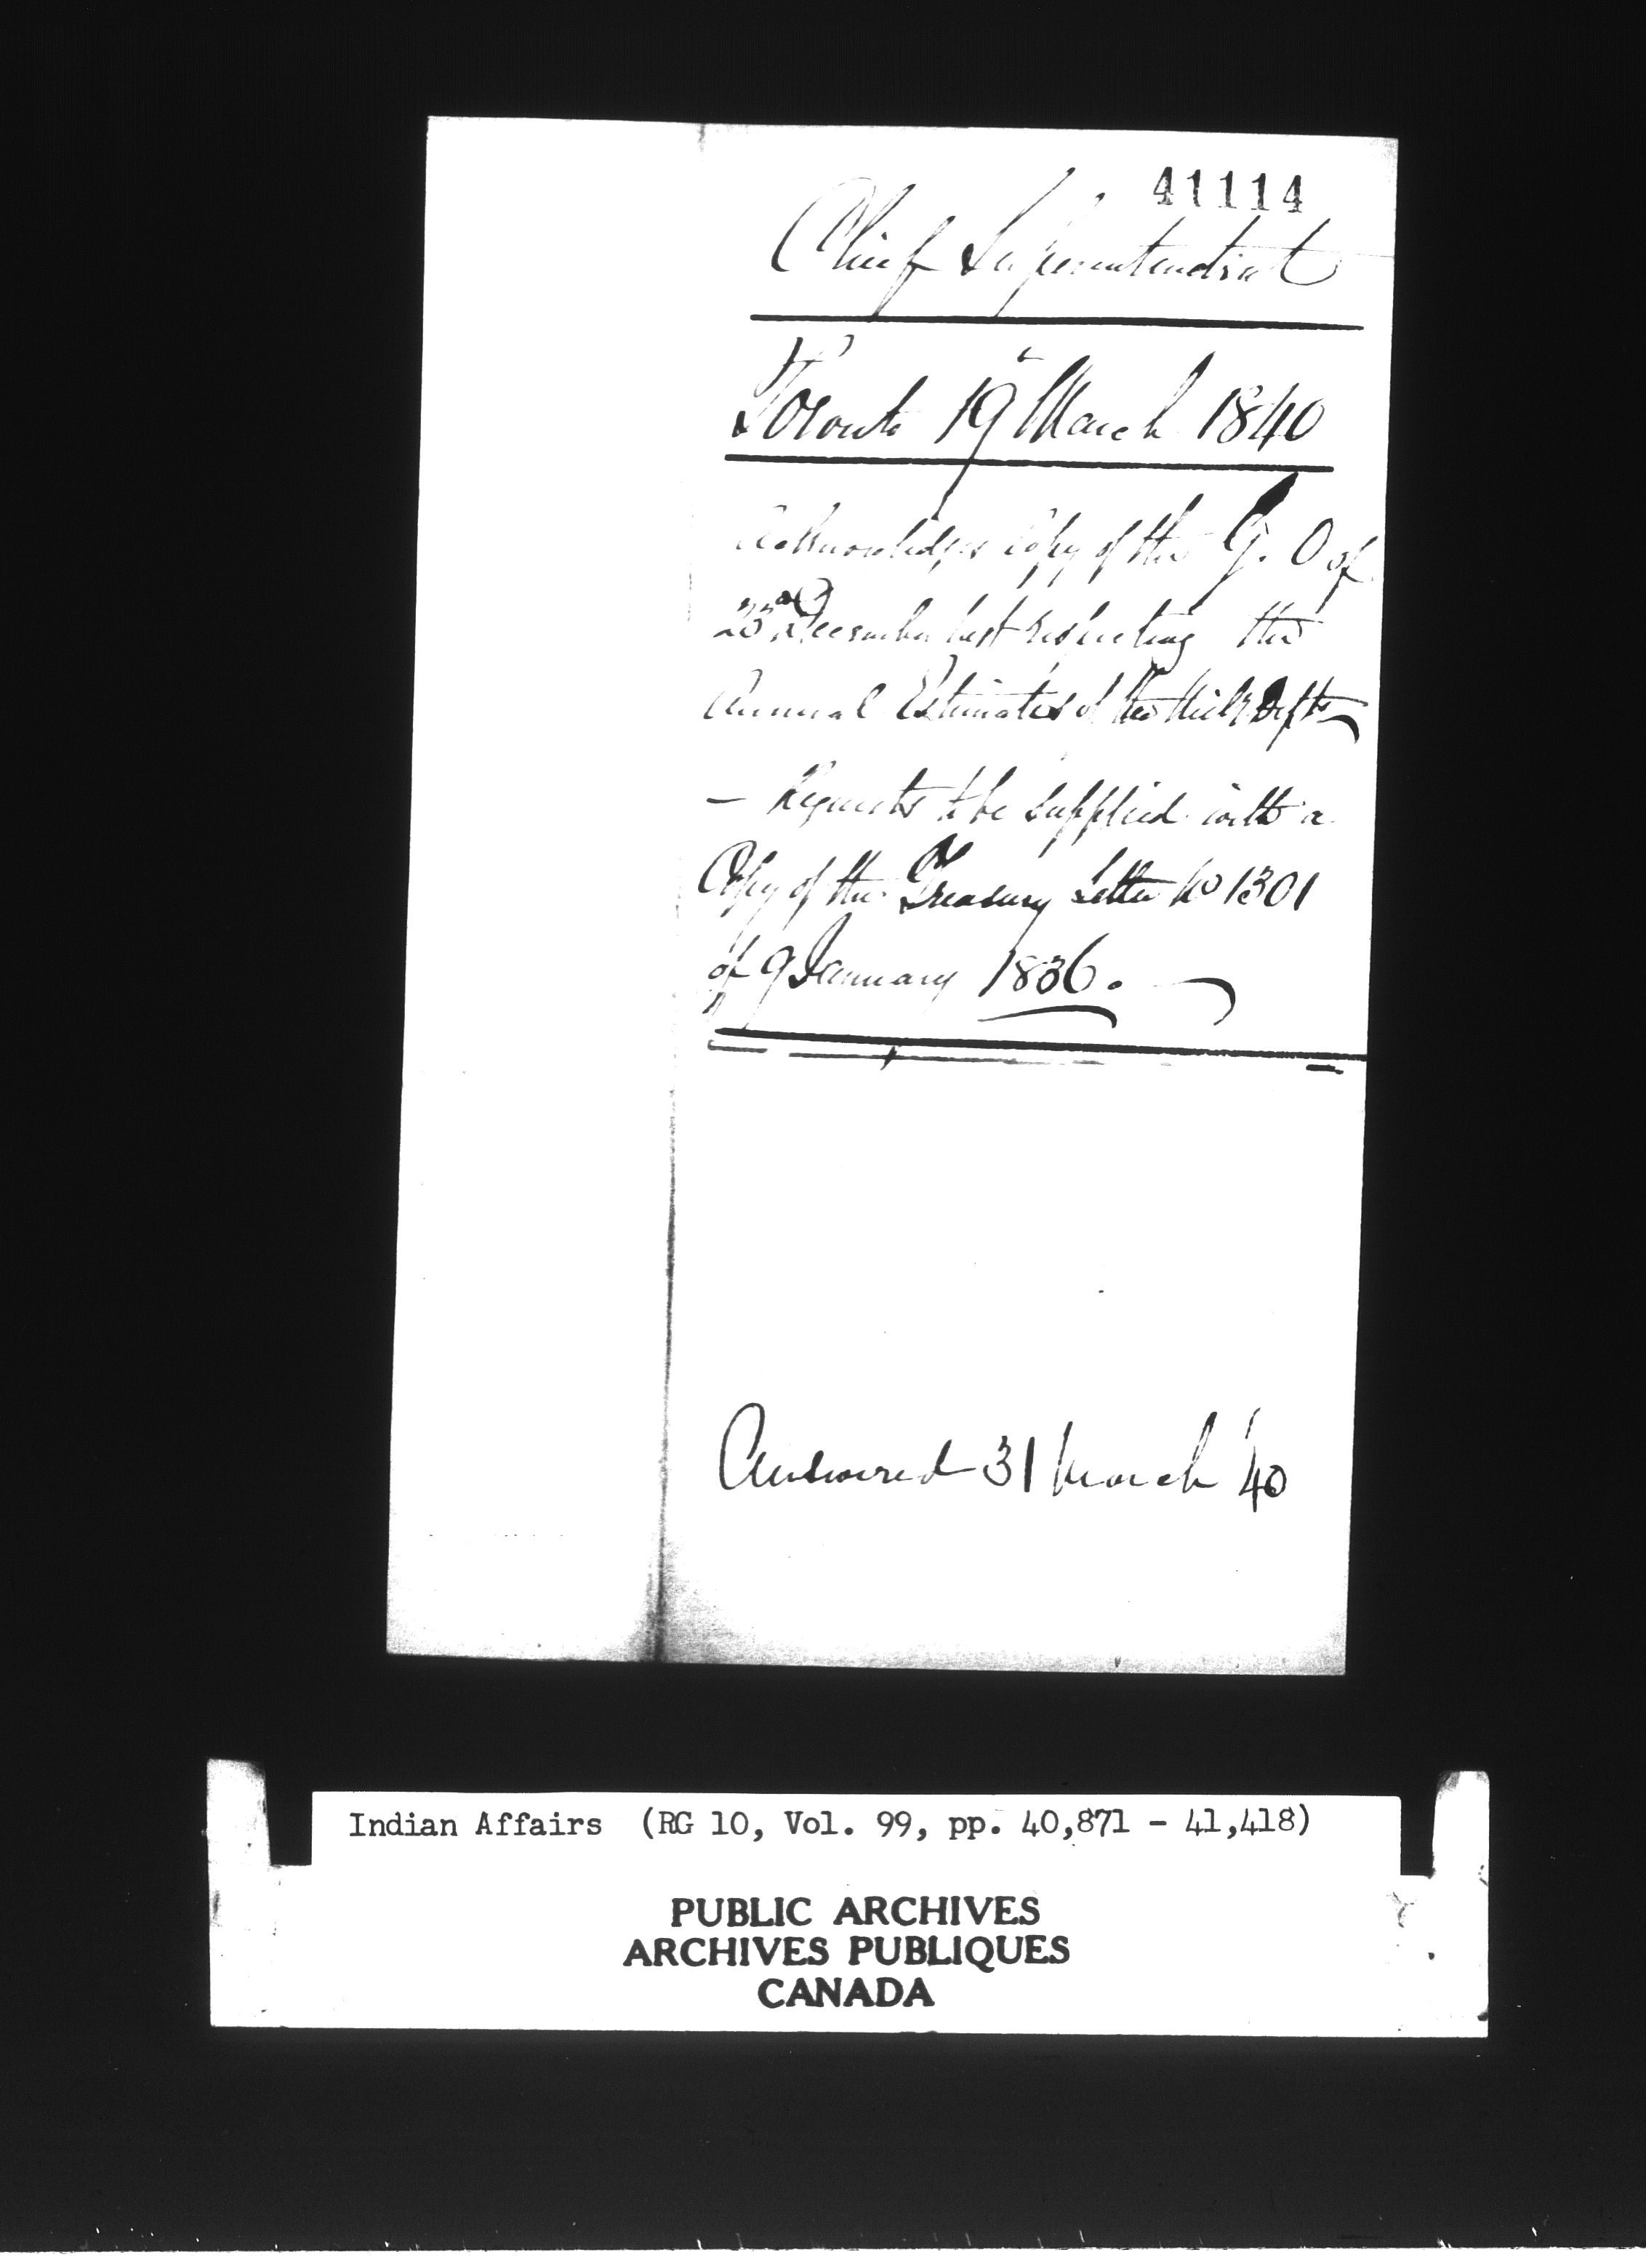 41114
Chief Superintendent
Toronto 19 March 1840
Acknowledges Copy of the G. O of
23rd December last respecting the
Annual Estimates of the Depts
— Requests to be supplied with a
Copy of the Treasury Letter No 1301
of 9 January 1836.
Answered 31 March '40
Indian Affairs (RG 10, Vol. 99, pp. 40,871 - 41,418)
PUBLIC ARCHIVES
ARCHIVES PUBLIQUES
CANADA